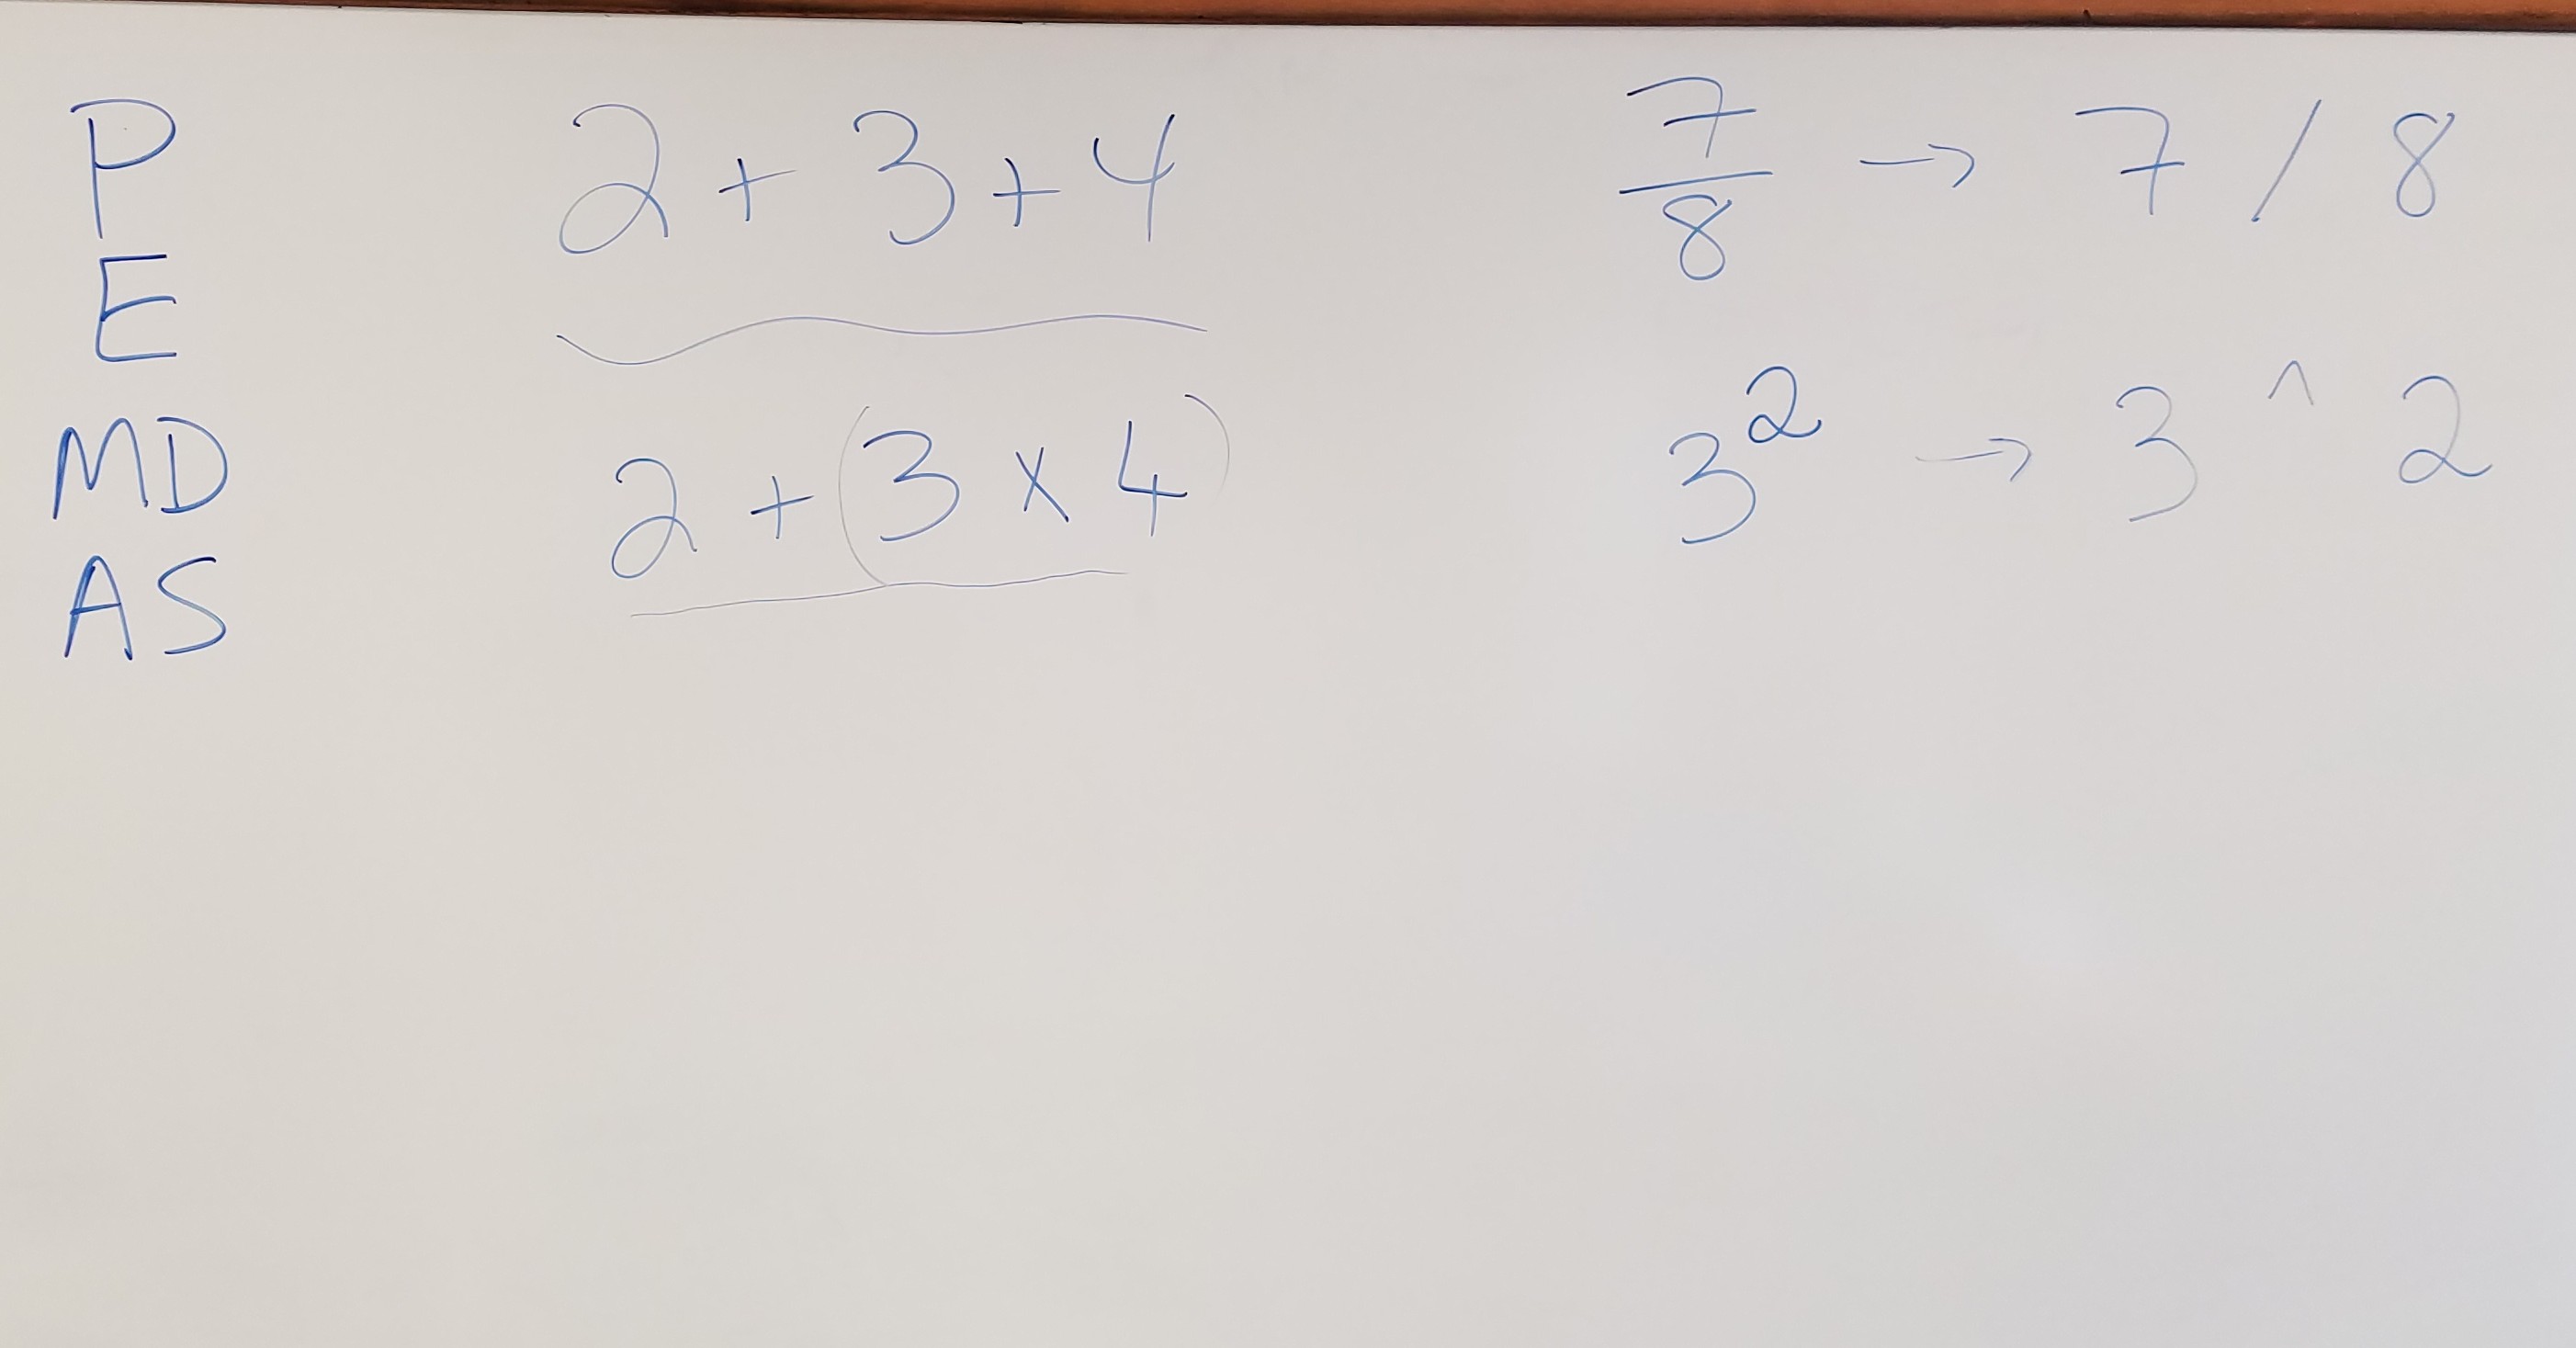 P
E
MD
AS
2 + 3 + 4
2 + (3 x 4)
7
8
→ 7 / 8
3² → 3 ^ 2